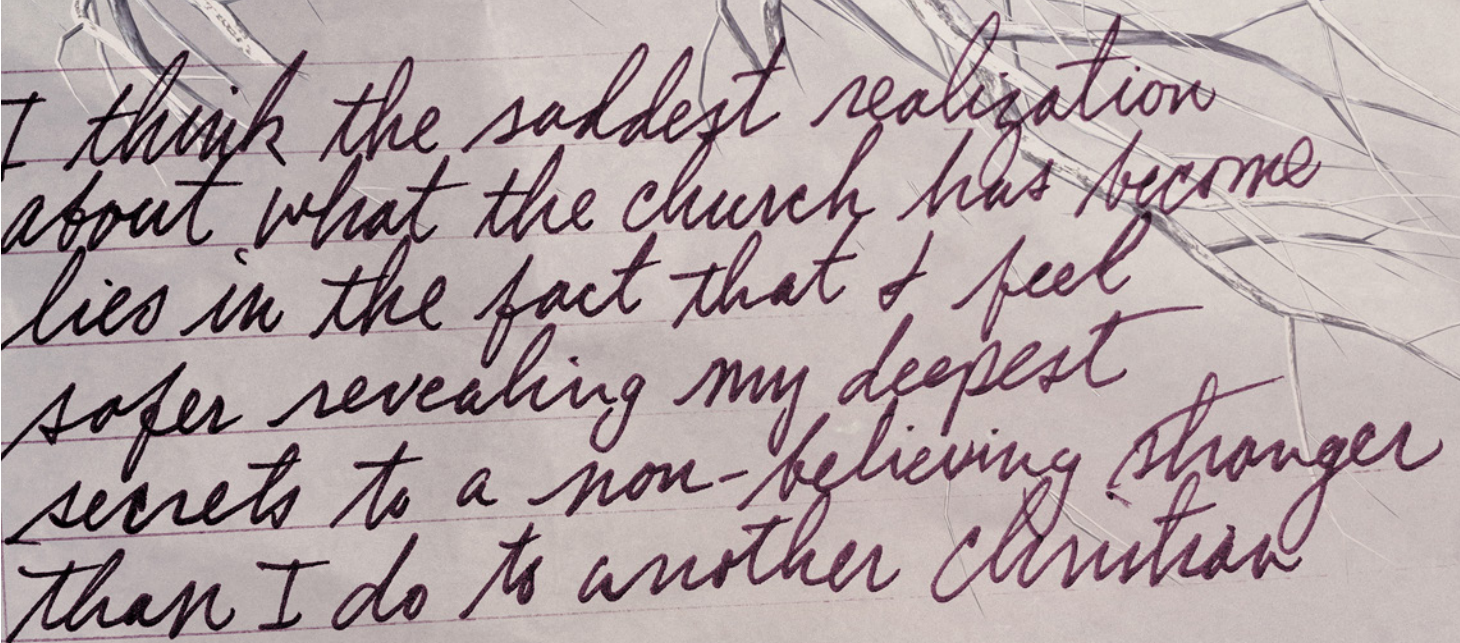 I think the saddest realization
about what the church has become
lies in the fact that I feel
safer revealing my deepest
secrets to a non-believing stranger
than I do to another christian